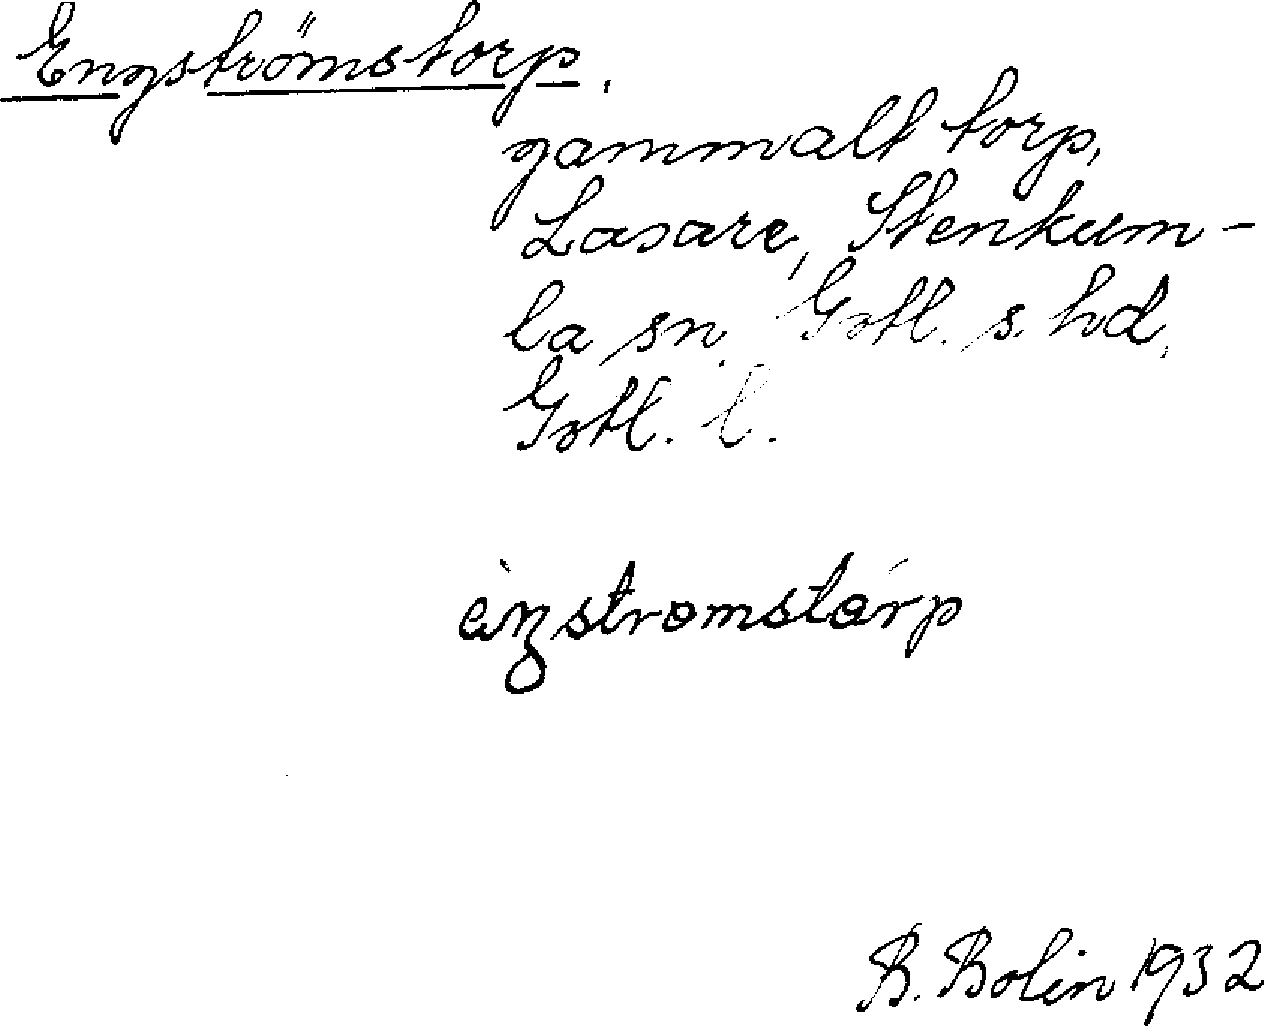 Engströmstorp.
gammalt torp,
Lasare, Stenkum-
la sn. Gotl. s. hd,
Gotl. l.
B. Bolin 1932